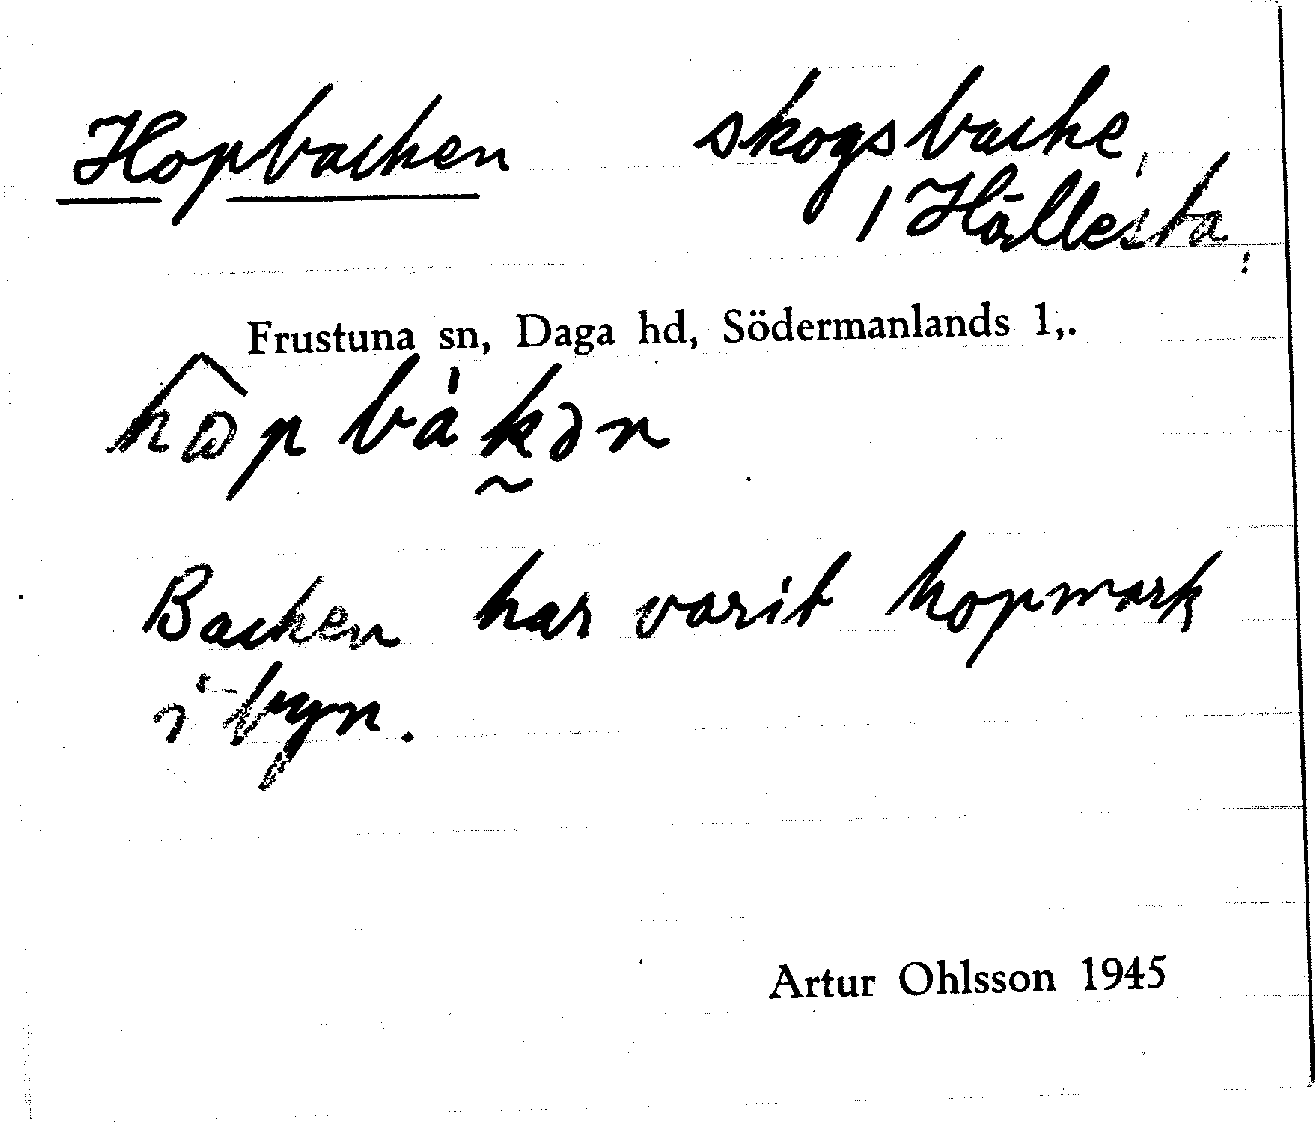 Hopbacken skogsbacke,
i Hållesta,
Frustuna sn, Daga hd, Södermanlands l,.
Backen har varit hopmark
i byn.
Artur Ohlsson 1945